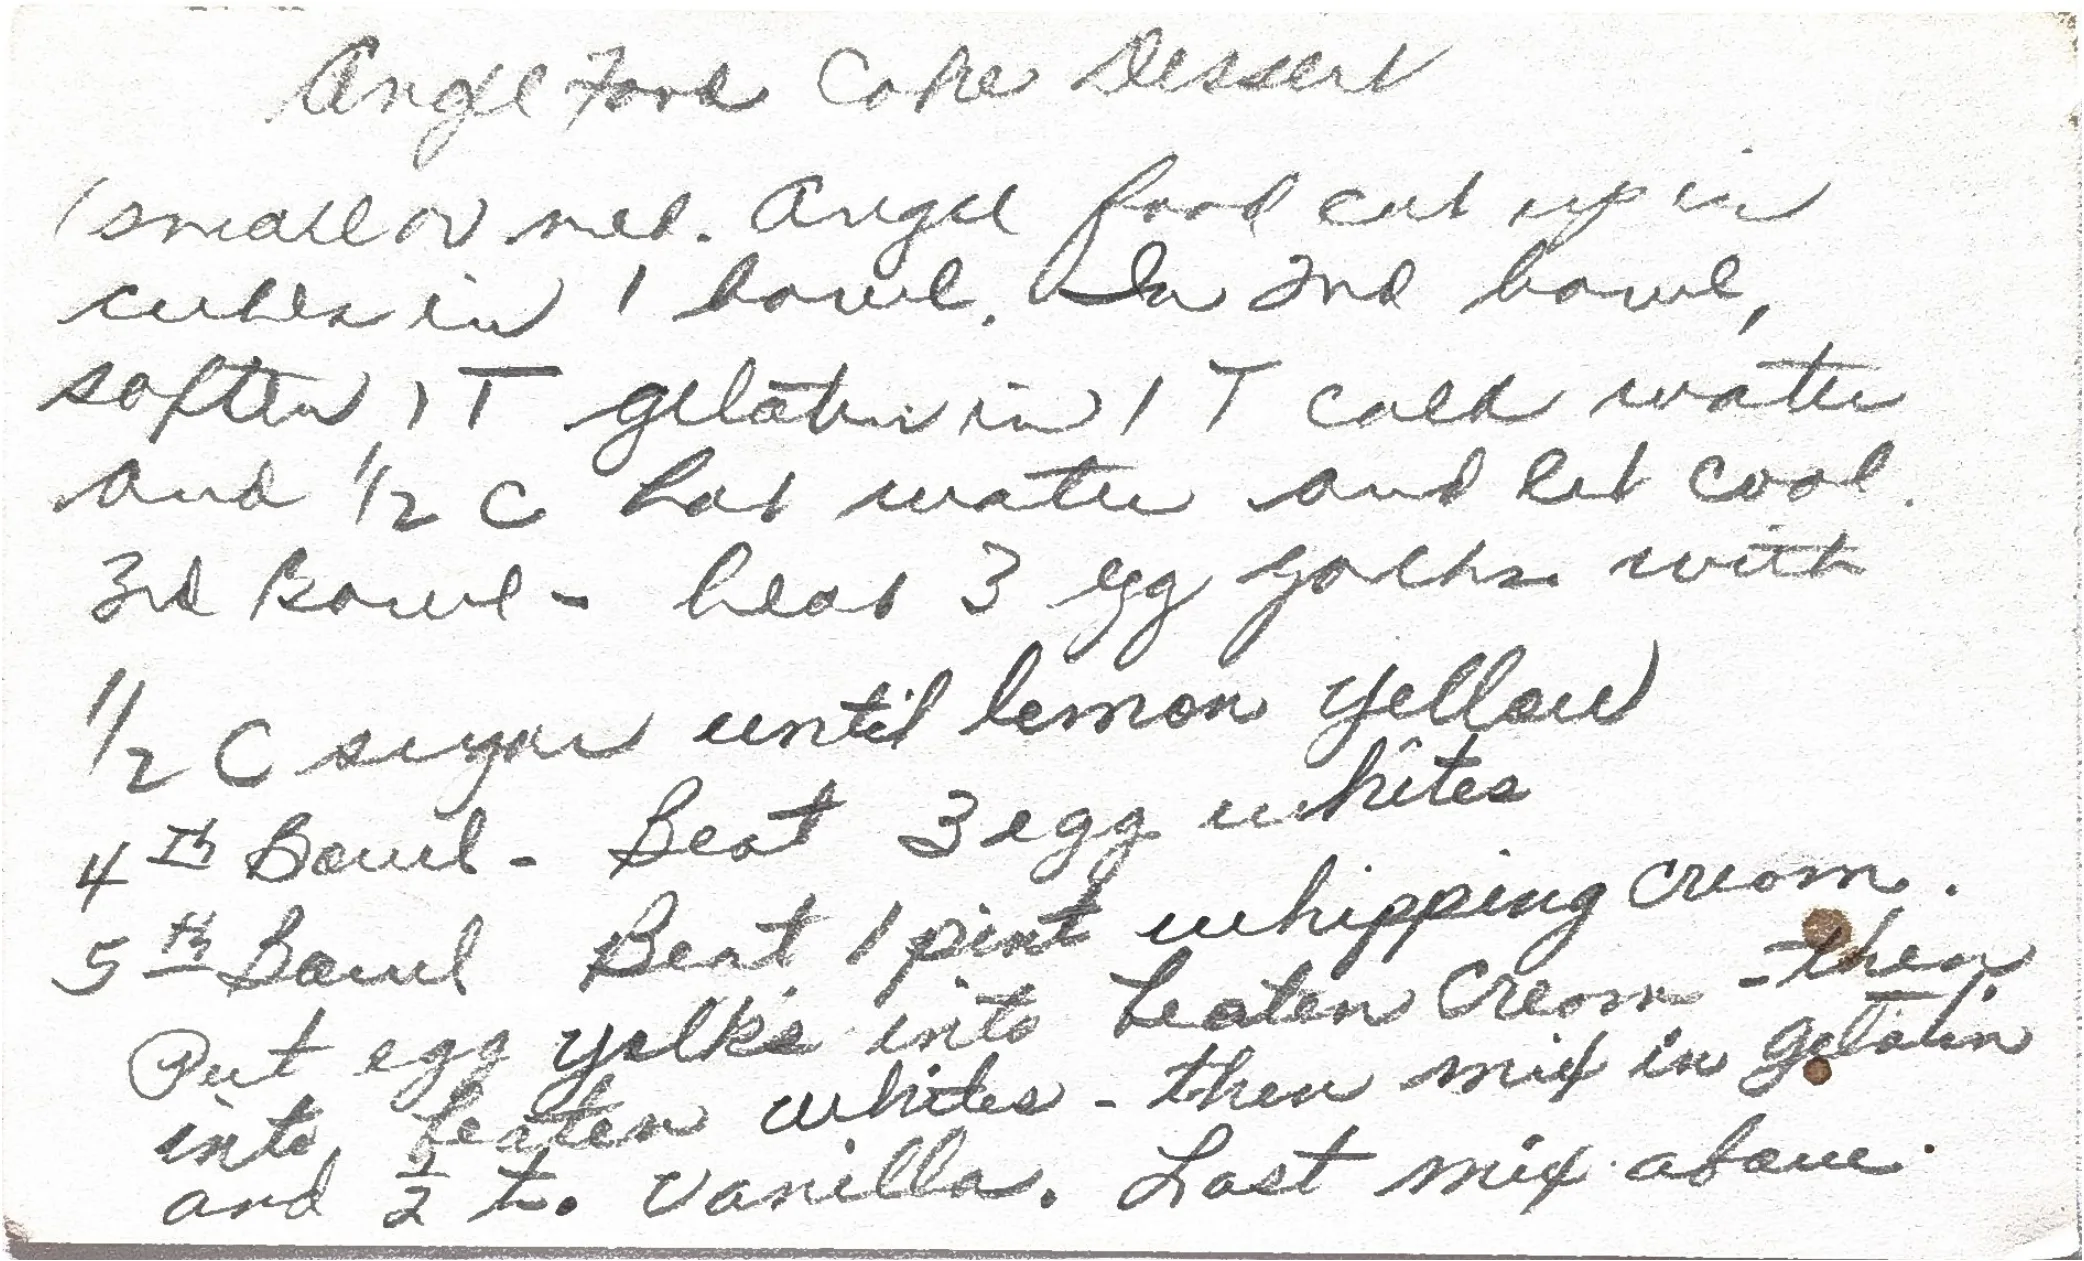 Angel Food Cake Dessert
1 small or med. Angel food cut up in
cubes in 1 bowl. In 2nd bowl,
soften 1 T gelatin in 1 T cold water
and 1/2 C hot water and let cool.
3rd Bowl - beat 3 egg yolks with
1/2 C sugar until lemon yellow
4th Bowl - Beat 3 egg whites
5th Bowl Beat 1 pint whipping cream.
Put egg yolks into beaten cream - then
into beaten whites - then mix in gelatin
and 1/2 t. vanilla. Last mix above